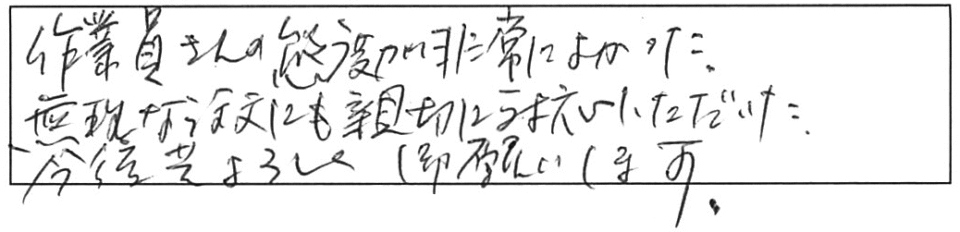 作業員さんの態度が非常によかった。
無理な注文にも親切に対応いただいた。
今後共よろしく御願いします。